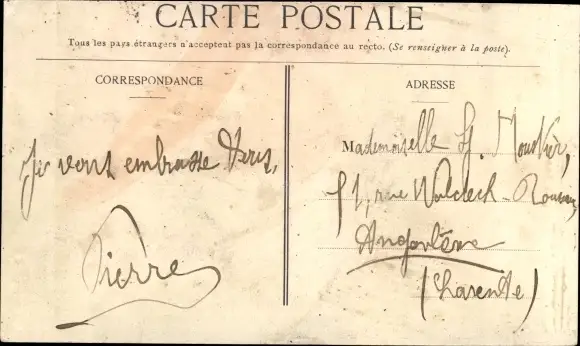 CARTE POSTALE
Tous les pays étrangers n'acceptent pas la correspondance au recto. (Se renseigner à la poste).
CORRESPONDANCE
ADRESSE
Je vous embrasse
Pierre
Mademoiselle
51, rue Waldeck-Rousseau
Angoulême
(Charente)